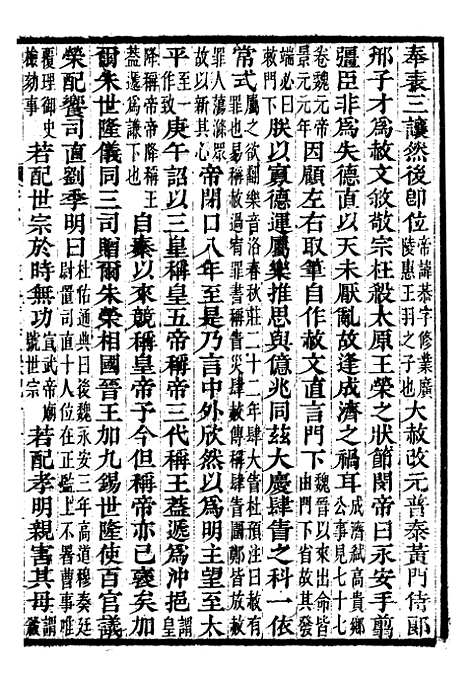 奉表三讓然後卽位帝諱恭字修業廣陵惠王羽之子也大赦改元普泰黃門侍郎
邢子才爲赦文敘敬宗枉殺太原王榮之狀節閔帝曰永安手翦
彊臣非爲失德直以天未厭亂故逢成濟之禍耳成濟弑高貴鄕公事見七十七
卷魏元帝景元元年因顧左右取筆自作赦文直言門下魏晉以來出命皆由門下省故其發
端必曰敕門下朕以寡德運屬樂推思與億兆同茲大慶肆眚之科一依
常式屬之欲翻樂音洛春秋莊二十二年肆大眚杜預注曰赦有罪也易稱赦過宥罪書稱眚災肆赦傳稱肆眚圍鄭皆放赦
罪人蕩滌衆故以新其心帝閉口八年至是乃言中外欣然以爲明主望至太
平至一作致庚午詔以三皇稱皇五帝稱帝三代稱王葢遞爲沖挹謂皇
降稱帝帝降稱王葢遞爲謙下也自秦以來競稱皇帝予今但稱帝亦已褒矣加
爾朱世隆儀同三司贈爾朱榮相國晉王加九錫世隆使百官議
榮配饗司直劉季明曰杜佑通典曰後魏永安三年高道穆奏廷尉置司直十人位在正監上不署曹事唯
覆理御史檢劾事若配世宗於時無功宣武帝廟號世宗若配孝明親害其母謂榮